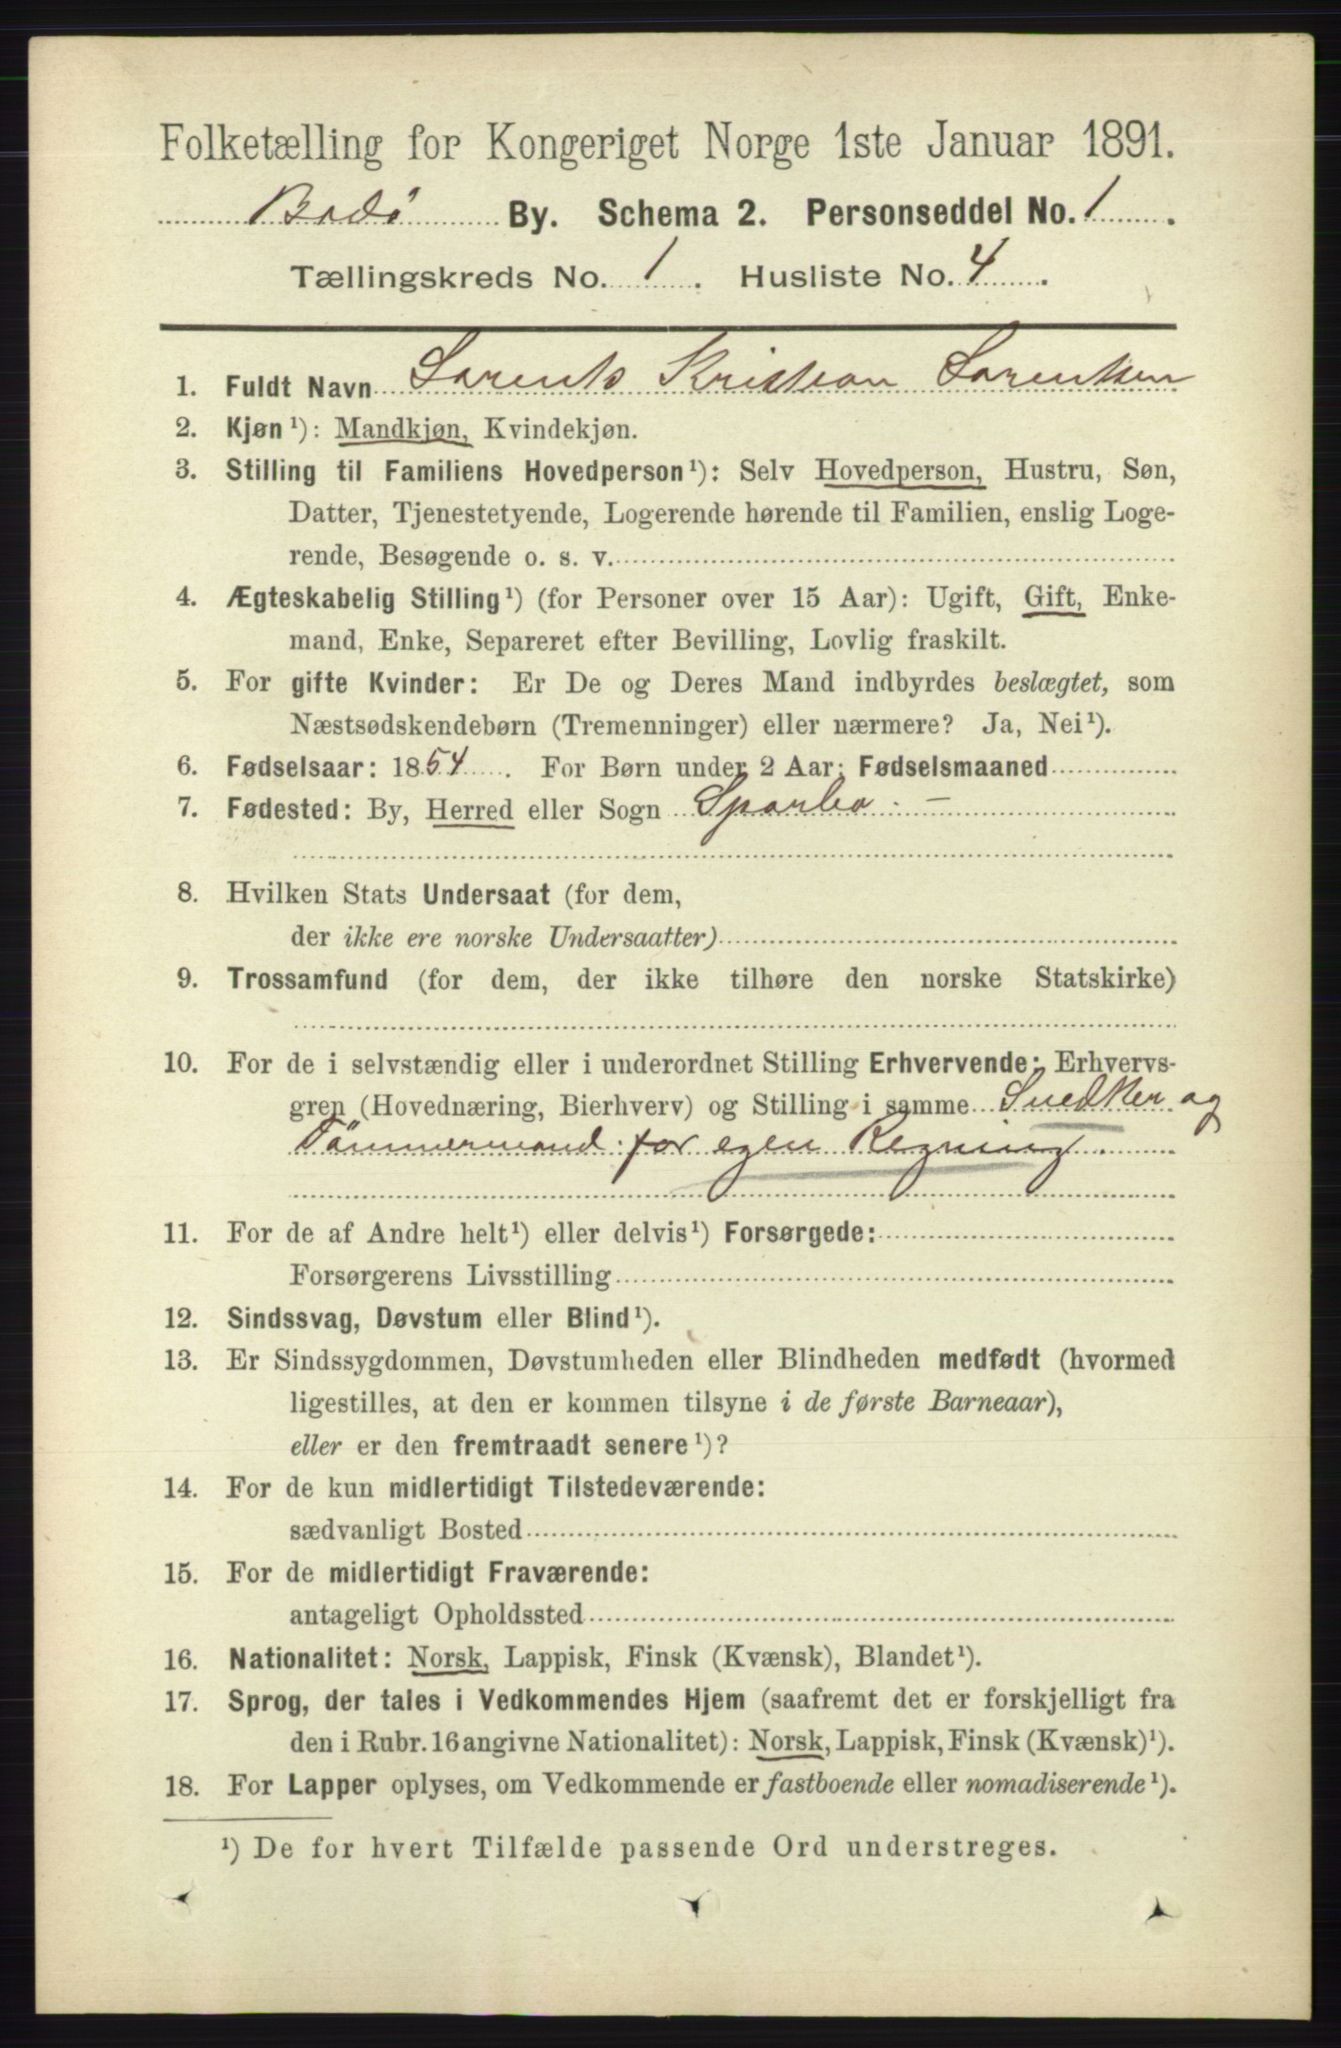 Folketælling for Kongeriget Norge 1ste Januar 1891.
Bodö By. Schema 2. Personseddel No. 1.
Tællingskreds No. 1. Husliste No. 4.
1. Fuldt Navn Lorents Kristian Lorentsen
2. Kjøn¹): Mandkjøn, Kvindekjøn.
3. Stilling til Familiens Hovedperson¹): Selv Hovedperson, Hustru, Søn,
Datter, Tjenestetyende, Logerende hørende til Familien, enslig Loge-
rende, Besøgende o. s. v.
4. Ægteskabelig Stilling¹) (for Personer over 15 Aar): Ugift, Gift, Enke-
mand, Enke, Separeret efter Bevilling, Lovlig fraskilt.
5. For gifte Kvinder: Er De og Deres Mand indbyrdes beslægtet, som
Næstsødskendebørn (Tremenninger) eller nærmere? Ja, Nei¹).
6. Fødselsaar: 1854. For Børn under 2 Aar: Fødselsmaaned
7. Fødested: By, Herred eller Sogn Sparbo. —
8. Hvilken Stats Undersaat (for dem,
der ikke ere norske Undersaatter)
9. Trossamfund (for dem, der ikke tilhøre den norske Statskirke)
10. For de i selvstændig eller i underordnet Stilling Erhvervende: Erhvervs-
gren (Hovednæring, Bierhverv) og Stilling i samme Snedker og
Tömmermand for egen Regning.
11. For de af Andre helt¹) eller delvis¹) Forsørgede:
Forsørgerens Livsstilling
12. Sindssvag, Døvstum eller Blind¹).
13. Er Sindssygdommen, Døvstumheden eller Blindheden medfødt (hvormed
ligestilles, at den er kommen tilsyne i de første Barneaar),
eller er den fremtraadt senere¹)?
14. For de kun midlertidigt Tilstedeværende:
sædvanligt Bosted
15. For de midlertidigt Fraværende:
antageligt Opholdssted
16. Nationalitet: Norsk, Lappisk, Finsk (Kvænsk), Blandet¹).
17. Sprog, der tales i Vedkommendes Hjem (saafremt det er forskjelligt fra
den i Rubr. 16 angivne Nationalitet): Norsk, Lappisk, Finsk (Kvænsk)¹).
18. For Lapper oplyses, om Vedkommende er fastboende eller nomadiserende¹).
¹) De for hvert Tilfælde passende Ord understreges.